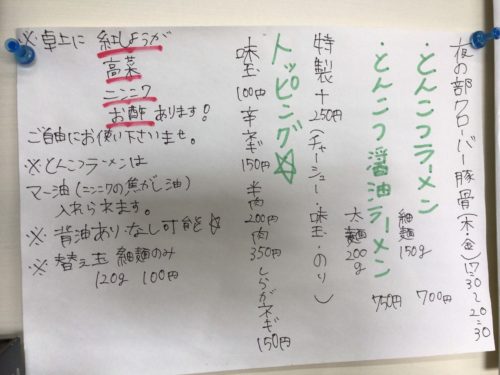 夜の部クローバー豚骨(木・金)17:30〜20:30
・とんこつラーメン
細麺 150g 700円
・とんこつ醤油ラーメン
太麺 200g 750円
特製+250円(チャーシュー・味玉・のり)
トッピング☆
味玉 100円 辛ネギ 150円 半肉 200円 肉 350円 しらがネギ 150円
※卓上に 紅しょうが
高菜
ニンニク
お酢 あります!
ご自由にお使い下さいませ。
※とんこつラーメンは
マー油(ニンニクの焦がし油)
入れられます。
※背油あり・なし可能☆
※替え玉 細麺のみ
120g 100円